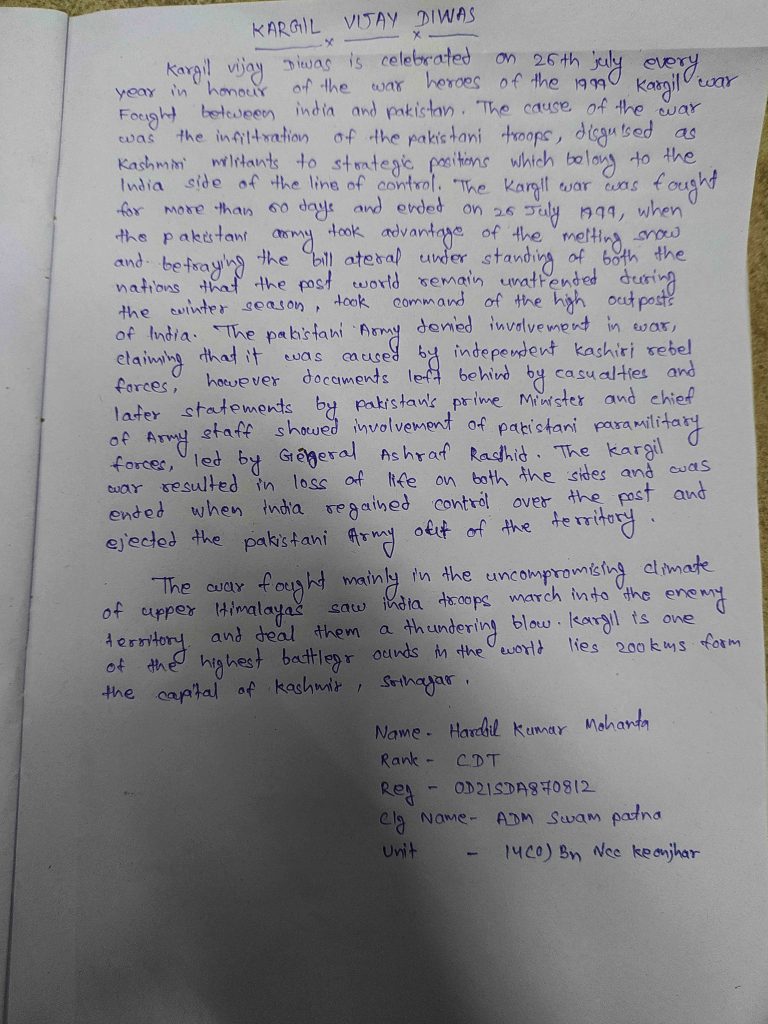 KARGIL VIJAY DIWAS
Kargil vijay Diwas is celebrated on 26th july every
year in honour of the war heroes of the 1999 Kargil war
Fought between india and pakistan. The cause of the war
was the infiltration of the pakistani troops, disguised as
Kashmiri militants to strategic positions which belong to the
India side of the line of control. The Kargil war was fought
for more than 60 days and ended on 26 July 1999, when
the pakistani army took advantage of the melting snow
and betraying the bill ateral under standing of both the
nations that the post world remain unattended during
the winter season, took command of the high outposts
of India. The pakistani Army denied involvement in war,
claiming that it was caused by independent kashiri rebel
forces, however documents left behind by casualties and
later statements by pakistan's prime Minister and chief
of Army staff showed involvement of pakistani paramilitary
forces, led by General Ashraf Rashid. The Kargil
war resulted in loss of life on both the sides and was
ended when india regained control over the post and
ejected the pakistani Army out of the territory.
The war fought mainly in the uncompromising climate
of upper Himalayas saw india troops march into the enemy
territory and deal them a thundering blow. Kargil is one
of the highest battlegr ounds in the world lies 200 kms form
the capital of Kashmir, Srinagar.
Name - Kumar Mohanta
Rank - CDT
Reg - OD21SDA870812
Clg Name - ADM Swam patna
Unit - 14(O) Bn Ncc Keonjhar